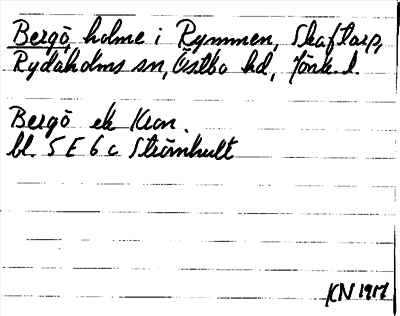 Bergö, holme i Rymmen, Skaftarp,
Rydaholms sn, Östbo hd, Jönk. l.
Bergö ek Kron.
bl. 5 E 6 c Strömhult
KN 1917